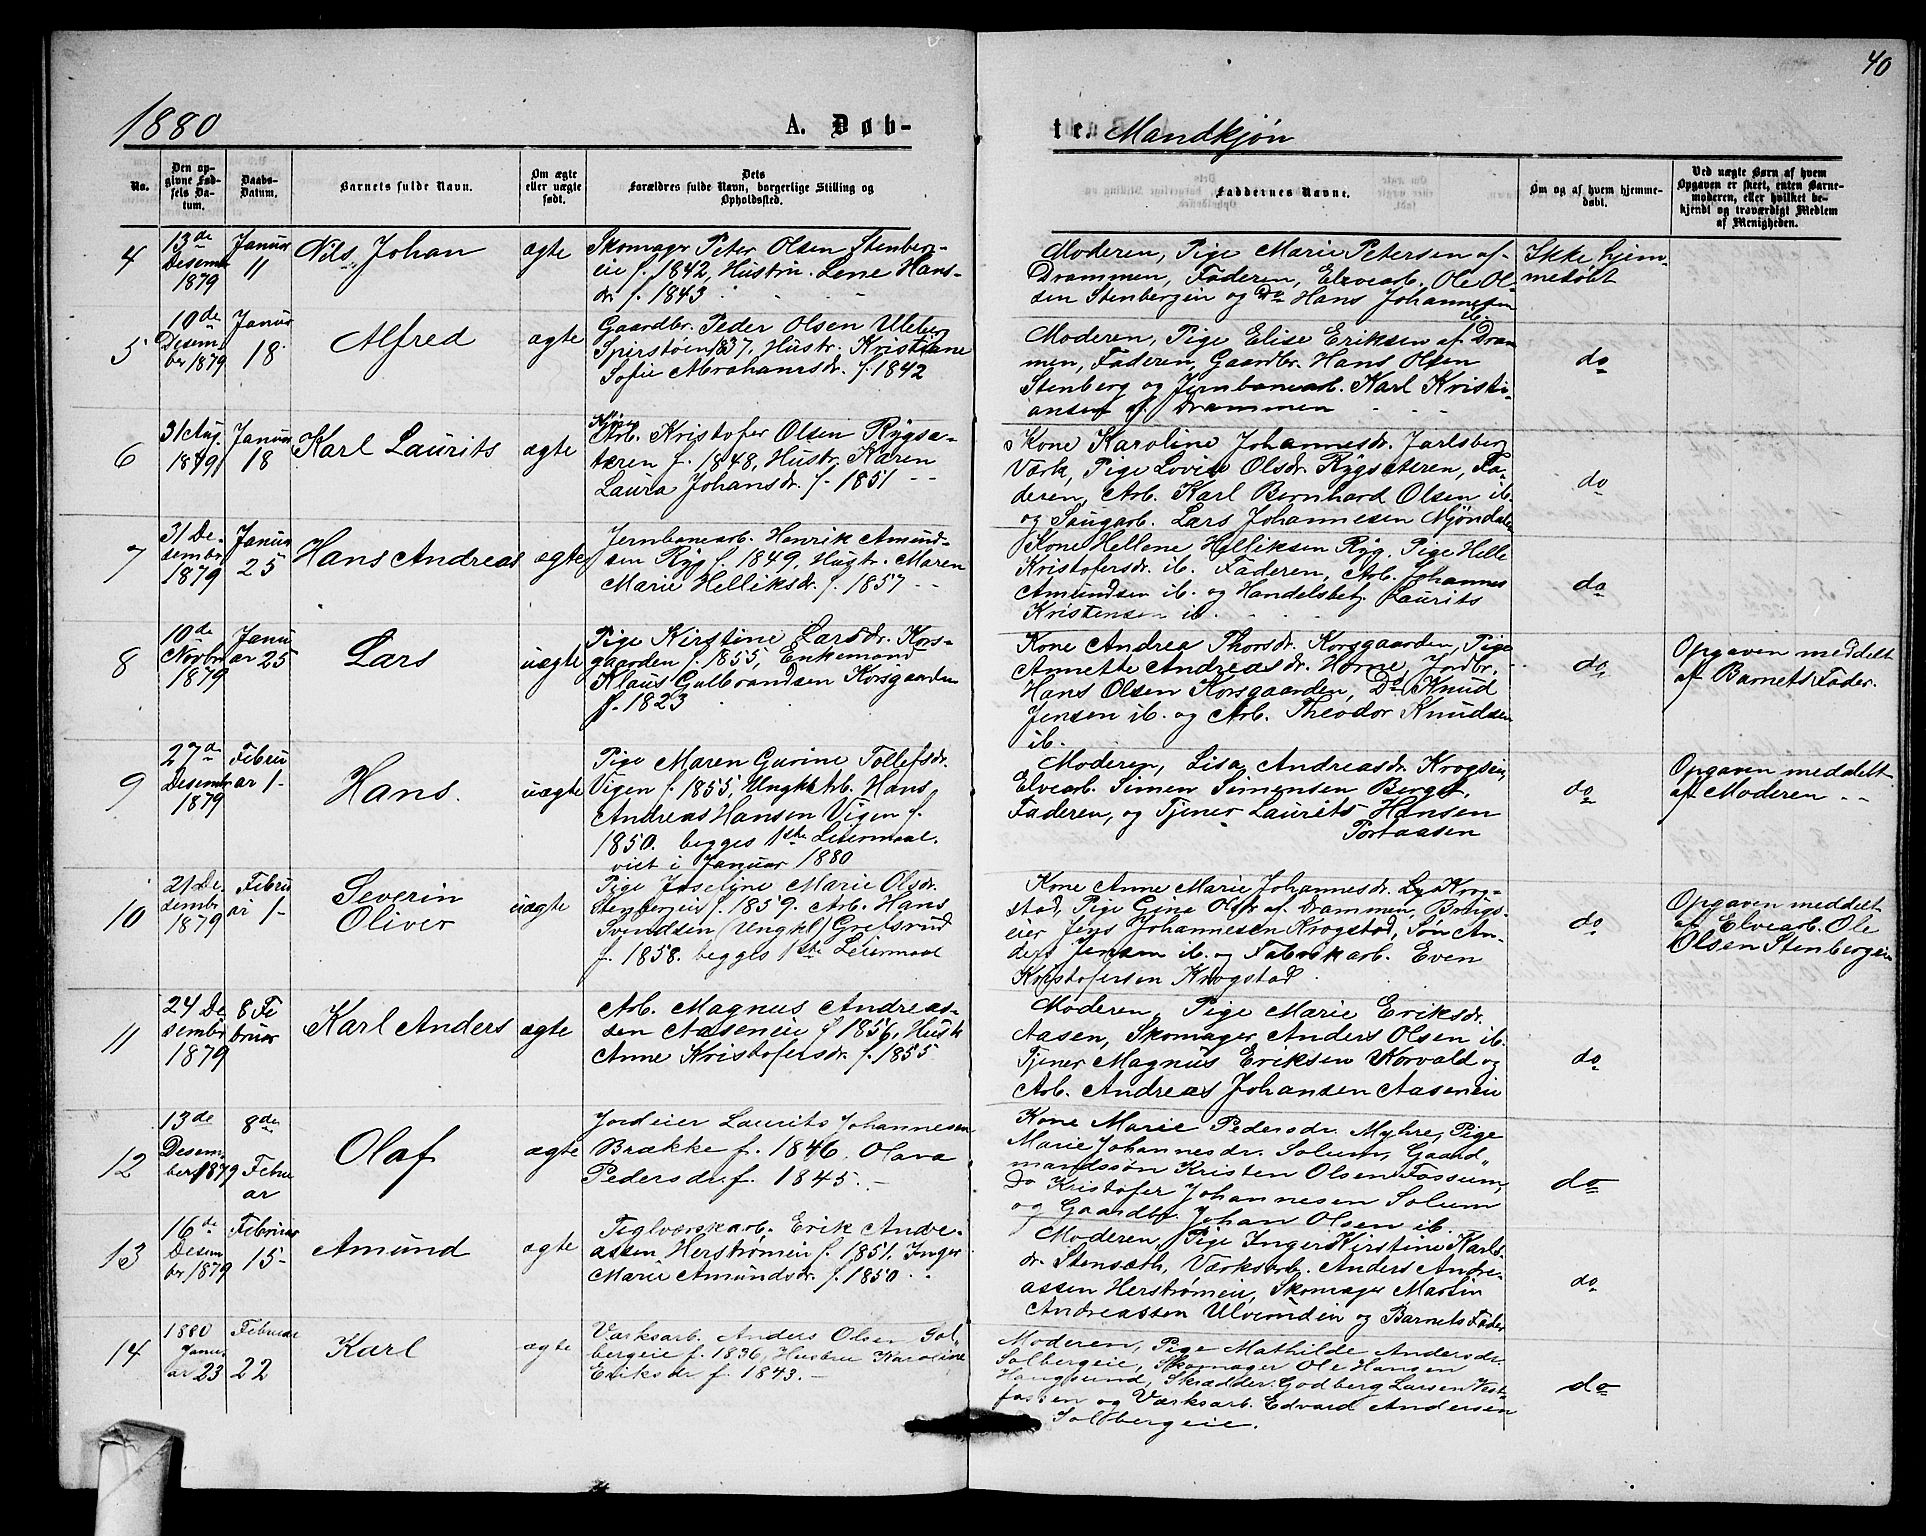 40
1880
A. Døb-
te. Mandkjøn
No.
Den op-
givne Fød-
sels Da-
tum.
Daabs-
Datum.
Barnets fulde Navn.
Om ægte
eller uægte
født.
Dets
Forældres fulde Navn, borgerlige Stilling og
Opholdssted.
Faddernes Navne.
Om og af hvem hjemme-
døbt.
Ved uægte Børn af hvem
Opgaven er skeet, enten Barne-
moderen, eller hvilket be-
kjendt og troværdigt Medlem
af Menigheden.
4
13de
Desemb
1879
Januar
11
Nils Johan
ægte
Skomagr Peter Olsen Stenberg-
eie f. 1842, Hustru Lene Hans-
dr. f. 1843
Moderen, Pige Marie Petersen af
Drammen, Faderen, Elvearb. Ole Ol-
sen Stenbergein og Do Hans Johannesen
ib.
Ikke hjem-
medøbt
5
10de
Desem-
br 1879
Januar
18
Alfred
ægte
Gaardbr. Peder Olsen Uleberg
Spirstøen 1837, Hustr. Kristiane
Sofie Abrahamsdr. f. 1842
Moderen, Pige Elise Eriksen af Dram-
men, Faderen, Gaardbr. Hans Olsen
Stenberg og Jernbanearb. Karl Kristi-
ansen af Drammen
do
6
31 Aug.
1879
Januar
18
Karl Laurits
ægte
Arb. Kristofer Olsen Rygsæ-
teren f. 1848, Hustr. Karen
Laura Johansdr. f. 1851
Kone Karoline Johannesdr. Jarlsberg
Værk, Pige Lovise Olsdr. Rygsæteren, Fa-
deren, Arb. Karl Bernhard Olsen ib.
og Saugarb. Lars Johannesen Mjøndalen
do
7
31 De-
sembr
1879
Januar
25
Hans Andreas
ægte
Jernbanearb. Henrik Amund-
sen Ryg f. 1849, Hustr. Maren
Marie Helliksdr. f. 1857
Kone Hellene Helliksen Ryg, Pige Helle
Kristofersdr. ib. Faderen, Arb. Johannes
Amundsen ib. og Handelsbetj. Laurits
Kristensen ib.
do
8
10de
Novbr
1879
Janu
ar 25
Lars
uægte
Pige Kirstine Larsdr. Kors-
gaarden f. 1855, Enkemand
Klaus Gulbrandsen Korsgaarden
f. 1823
Kone Andrea Thorsdr. Korsgaarden, Pige
Annette Andreasdr. Horne, Jordbr.
Hans Olsen Korsgaarden, Do Knud
Jensen ib. og Arb. Theodor Knudsen
ib.
do
Opgaven meddelt
af Barnets Fader.
9
27de
Desembr
1879
Febru
ar 1-
Hans.
uægte
Pige Maren Gurine Tollefsdr.
Vigen f. 1855, Ungk. Arb. Hans
Andreas Hansen Vigen f.
1850. begges 1ste Leiermaal.
viet i Januar 1880
Moderen, Lisa Andreasdr. Krogsein,
Elvearb. Simen Simensen Berget,
Faderen, og Tjener Laurits Hansen
Portaasen
do
Opgaven meddelt
af Moderen
10
21 De-
sembr
1879
Febru
ar 1-
Severin
Oliver
uægte
Pige Joseline Marie Olsdr.
Stenbergeie f. 1859. Arb. Hans
Svendsen (Ungkl) Gretsrud
f. 1858. begges 1ste Leiermaal
Kone Anne Marie Johannesdr. Krog-
stad, Pige Gina Olsdr af Drammen, Brugs-
eier Jens Johannesen Krogstad, Søn An-
ders Jensen ib. og Fabrikarb. Even
Kristofersen Krogstad
do
Opgaven meddelt
af Elvearb. Ole
Olsen Stenbergein
11
24 De
sembr
1879
8 Fe
bruar
Karl Anders
ægte
Arb. Magnus Andreas-
sen Aaseneie f. 1856, Hustr.
Anne Kristofersdr. f. 1855
Moderen, Pige Marie Eriksdr.
Aasen, Skomager Anders Olsen ib.
Tjener Magnus Eriksen Korvald og
Arb. Andreas Johansen Aaseneie
do
12
13de
Desem-
ber 1879
8de
Febru
ar
Olaf
ægte
Jordeier Laurits Johannesen
Brække f. 1846, Olava
Pedersdr. f. 1845.
Kone Marie Pedersdr. Myhre, Pige
Marie Johannesdr. Solum, Gaard-
mandssøn Kristen Olsen Fossum,
Do Kristofer Johannesen Solum
og Gaardbr. Johan Olsen ib.
do
13
16de
Desem
br 1879
Februar
15-
Amund
ægte
Teglværksarb. Erik Andre-
assen Herstrømein f. 1851, Inger
Marie Amundsdr. f. 1850
Moderen, Pige Inger Kirstine Karls-
dr. Stensæth, Værksarb. Anders Andre-
assen Herstrømein, Skomager Martin
Andreassen Ulverudein og Barnets Fader
do
14
1880
Janu
ar 23
Februar
22
Karl
ægte
Værksarb. Anders Olsen Sol-
bergeie f. 1836, Hustru Karoline
Eriksdr f. 1843.
Moderen, Pige Mathilde Andersdr.
Solbergeie, Skomager Ole Hansen
Haugsund, Skrædder Godberg Larsen Vest-
fossen og Værksarb. Edvard Andersen
Solbergeie.
do